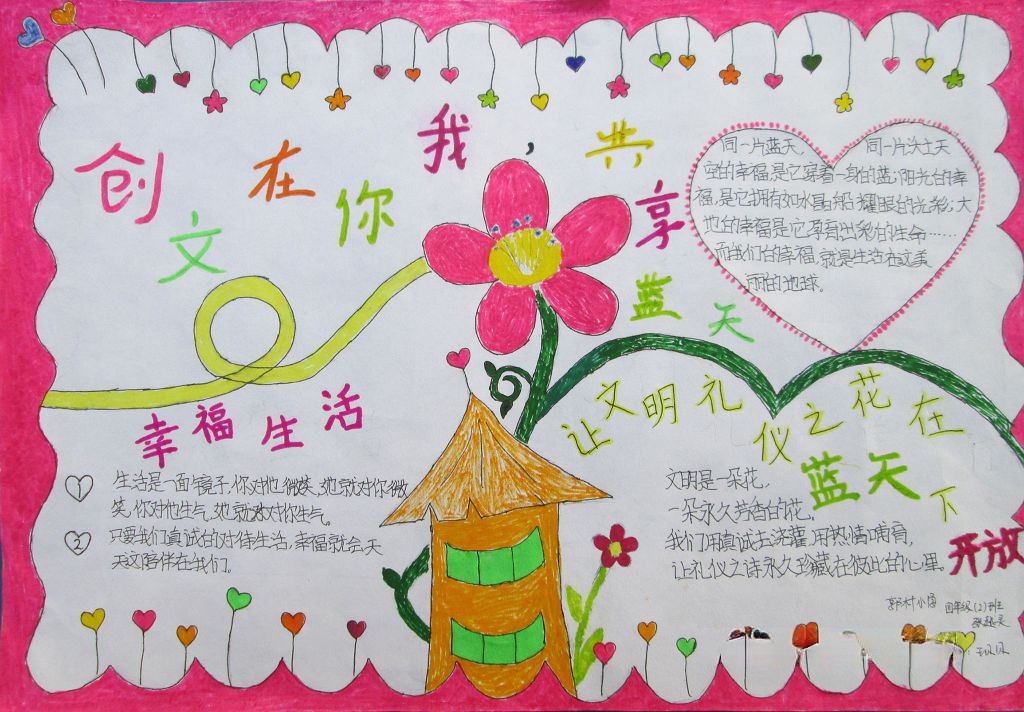 创文在你我,共享蓝天
同一片蓝天、同一片沃土天
空的幸福,是它穿着一身的蓝;阳光的幸
福,是它拥有如水晶船耀眼的光彩;大
地的幸福是它孕育出彩的生命……
而我们的幸福,就是生活在这美
丽的地球。
幸福生活
1 生活是一面镜子,你对他微笑,她就对你微
笑,你对他生气,她就对你生气。
2 只要我们真试的对待生活,幸福就会天
天这陪伴在我们。
让文明礼仪之花在
蓝天下
开放
文明是一朵花,
一朵永久芳香的花。
我们用真诚去浇灌,用热情哺育,
让礼仪之诗永久珍藏在彼此的心里。
郭村小学 四年级(2)班